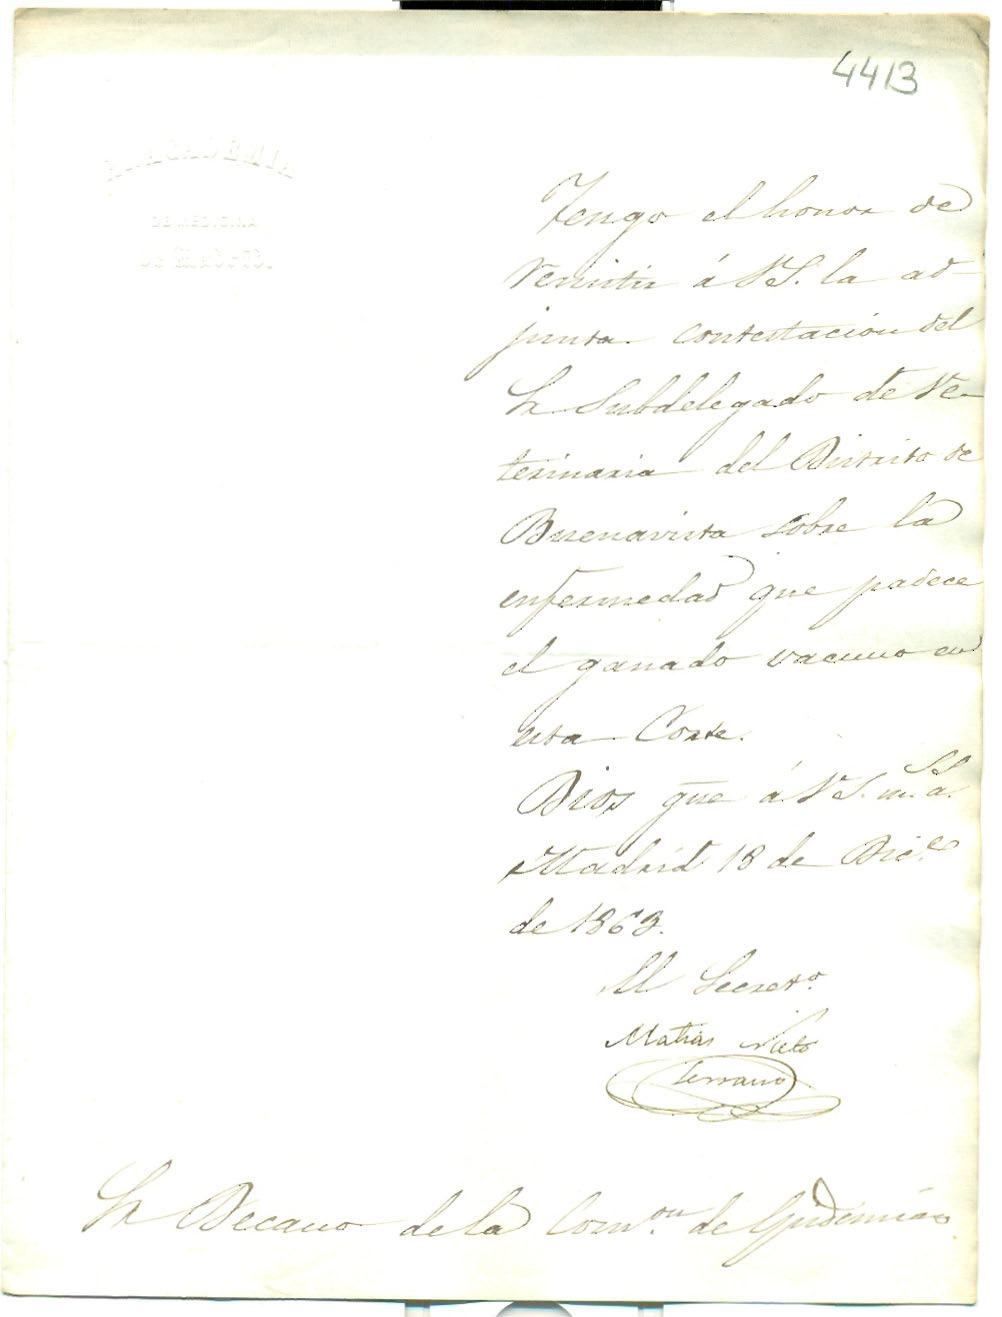 4413
RL. ACADEMIA
DE MEDICINA
DE MADRID.
Tengo el honor de
remitir á V.S. la ad-
junta contestación del
Sr Subdelegado de Ve-
terinaria del Distrito de
Buenavista sobre la
enfermedad que padece
el ganado vacuno en
esta Corte.
Dios gue á V.S. ms. as.
Madrid 18 de Dice.
de 1863.
El Secreto.
Matias Nieto
Serrano
Sr Decano de la Comon. de Epidemias.